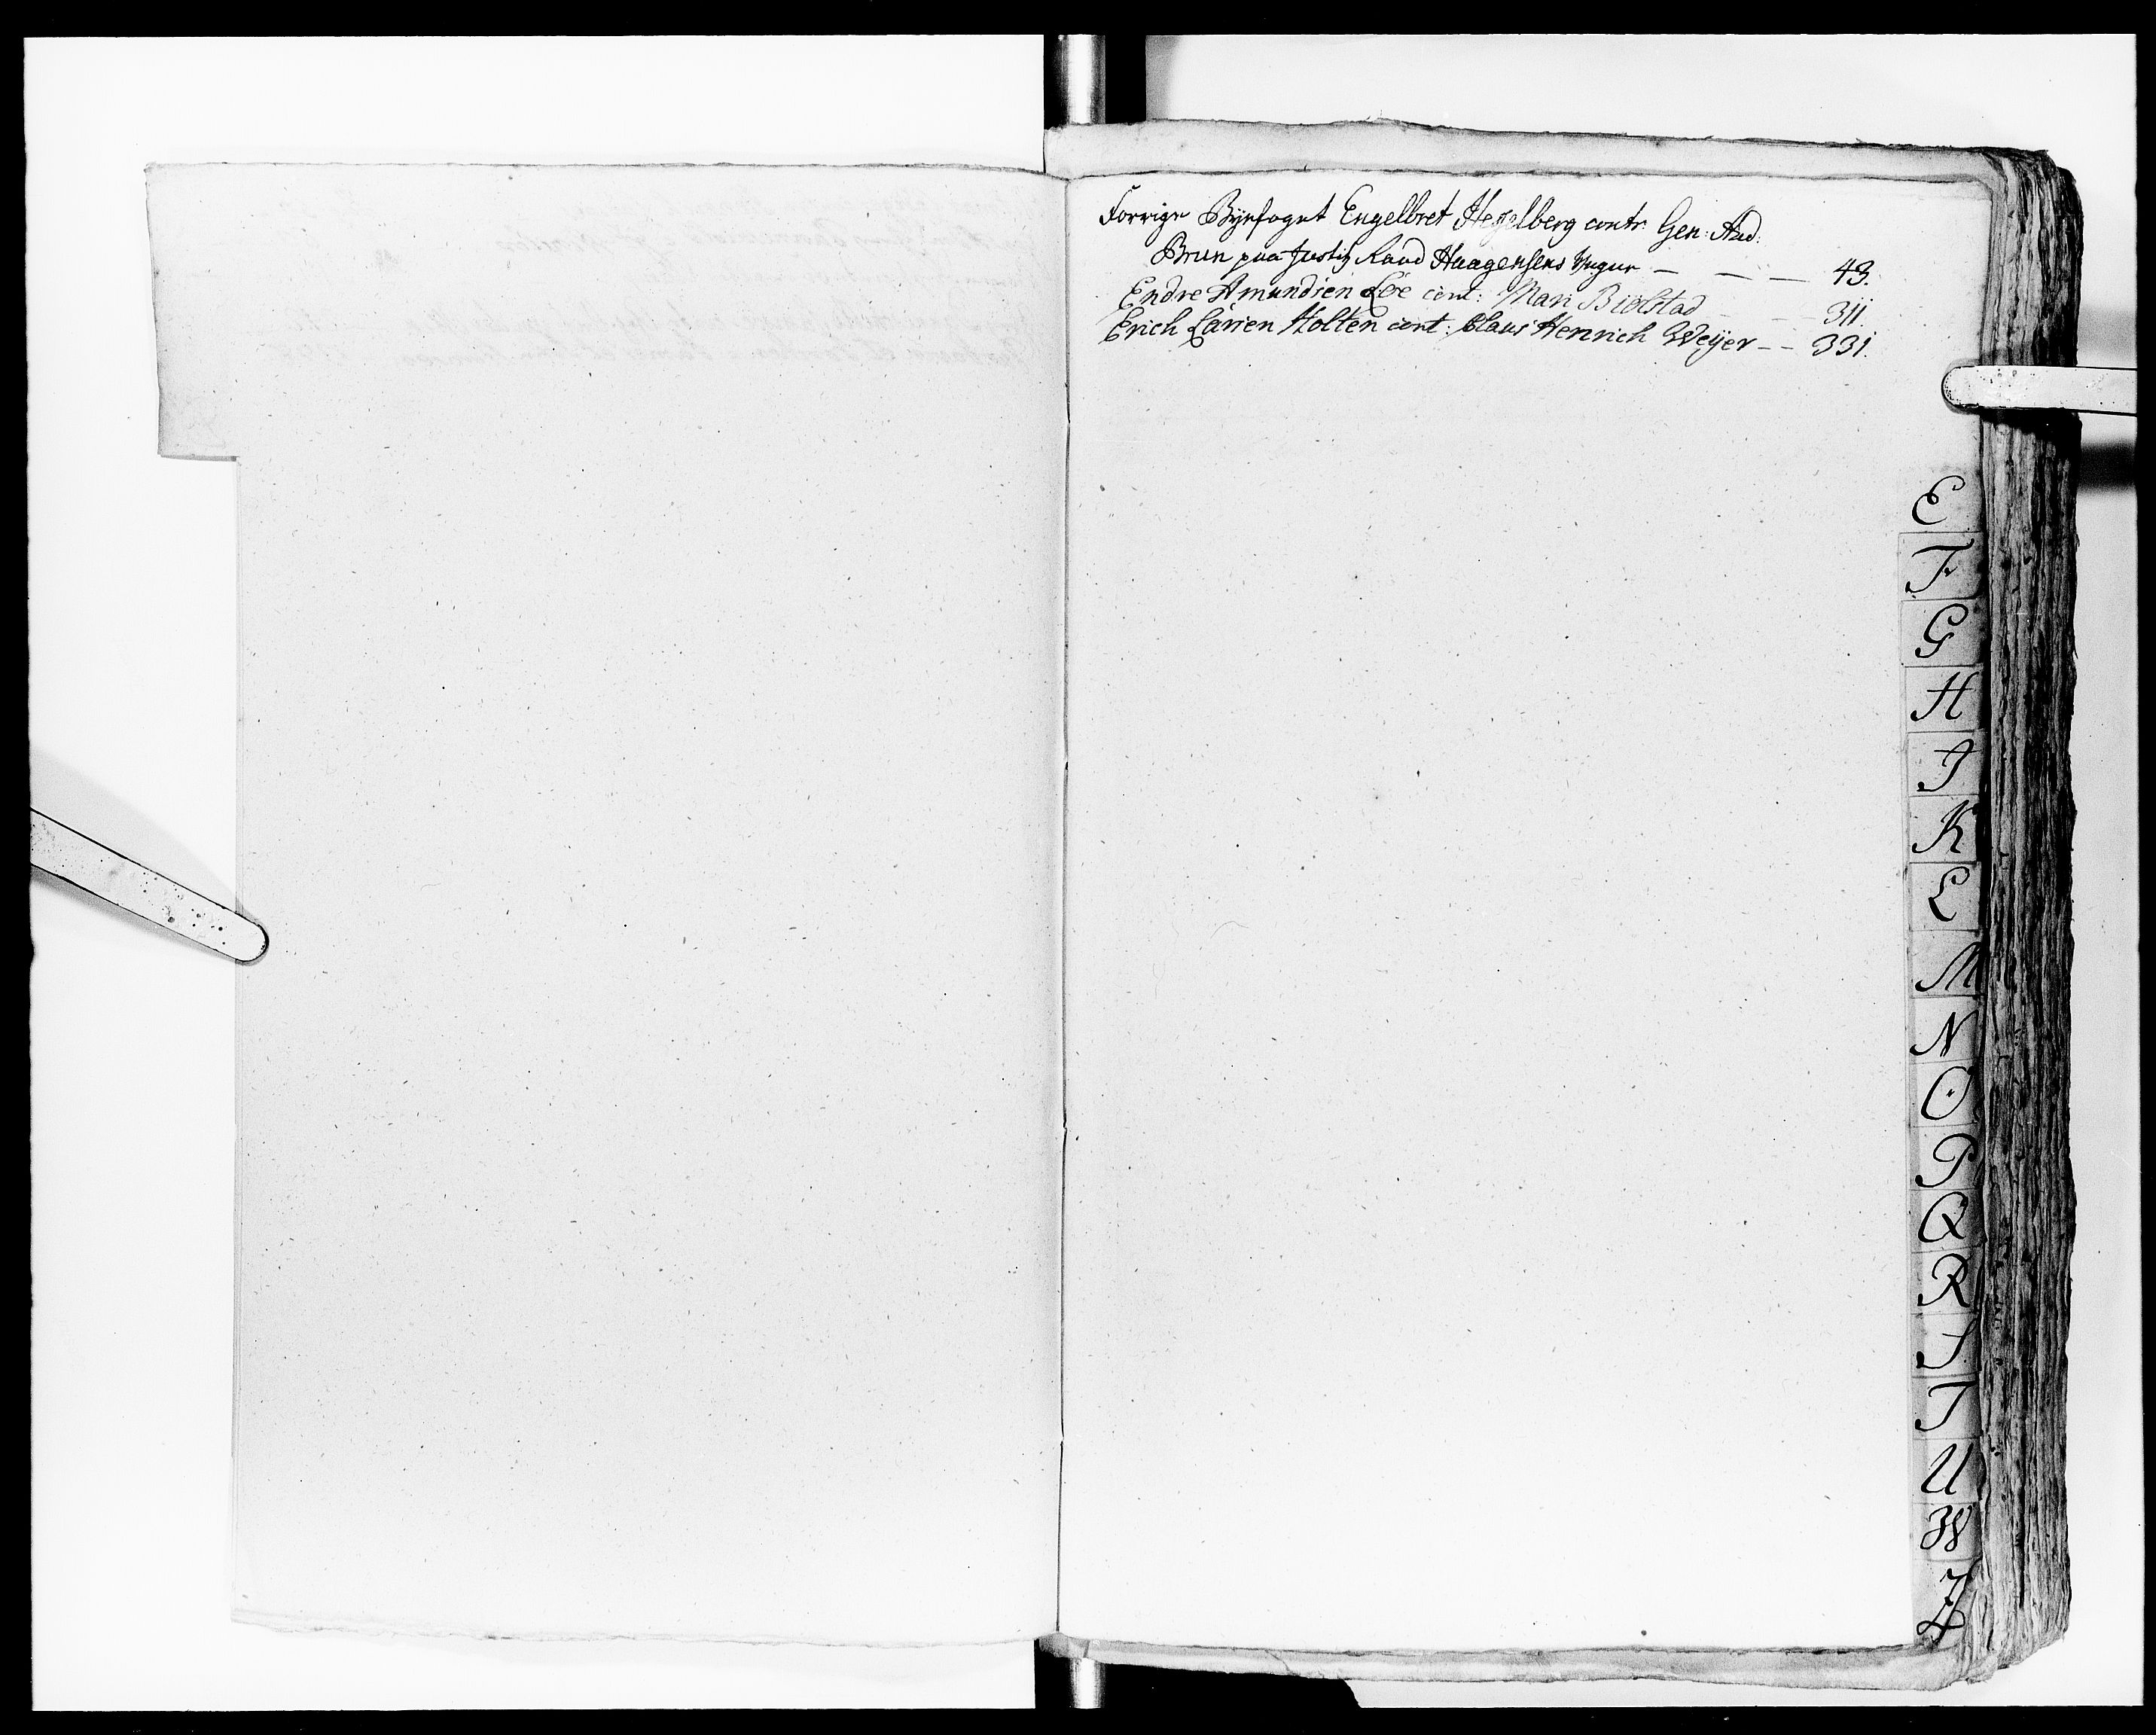 Forrige Byefoget Engelbret Hesselberg contr: Gen: Aud:
Brun paa Justiz Raad Haagensens Vegne — — — 43.
Endre Amundsen Löe cont: Mari Biölstad — — 311.
Erich Larsen Holten cont: Claus Henrich Weÿer — — 331.
E
F
G
H
I
K
L
M
N
O
P
Q
R
S
T
U
W
Z